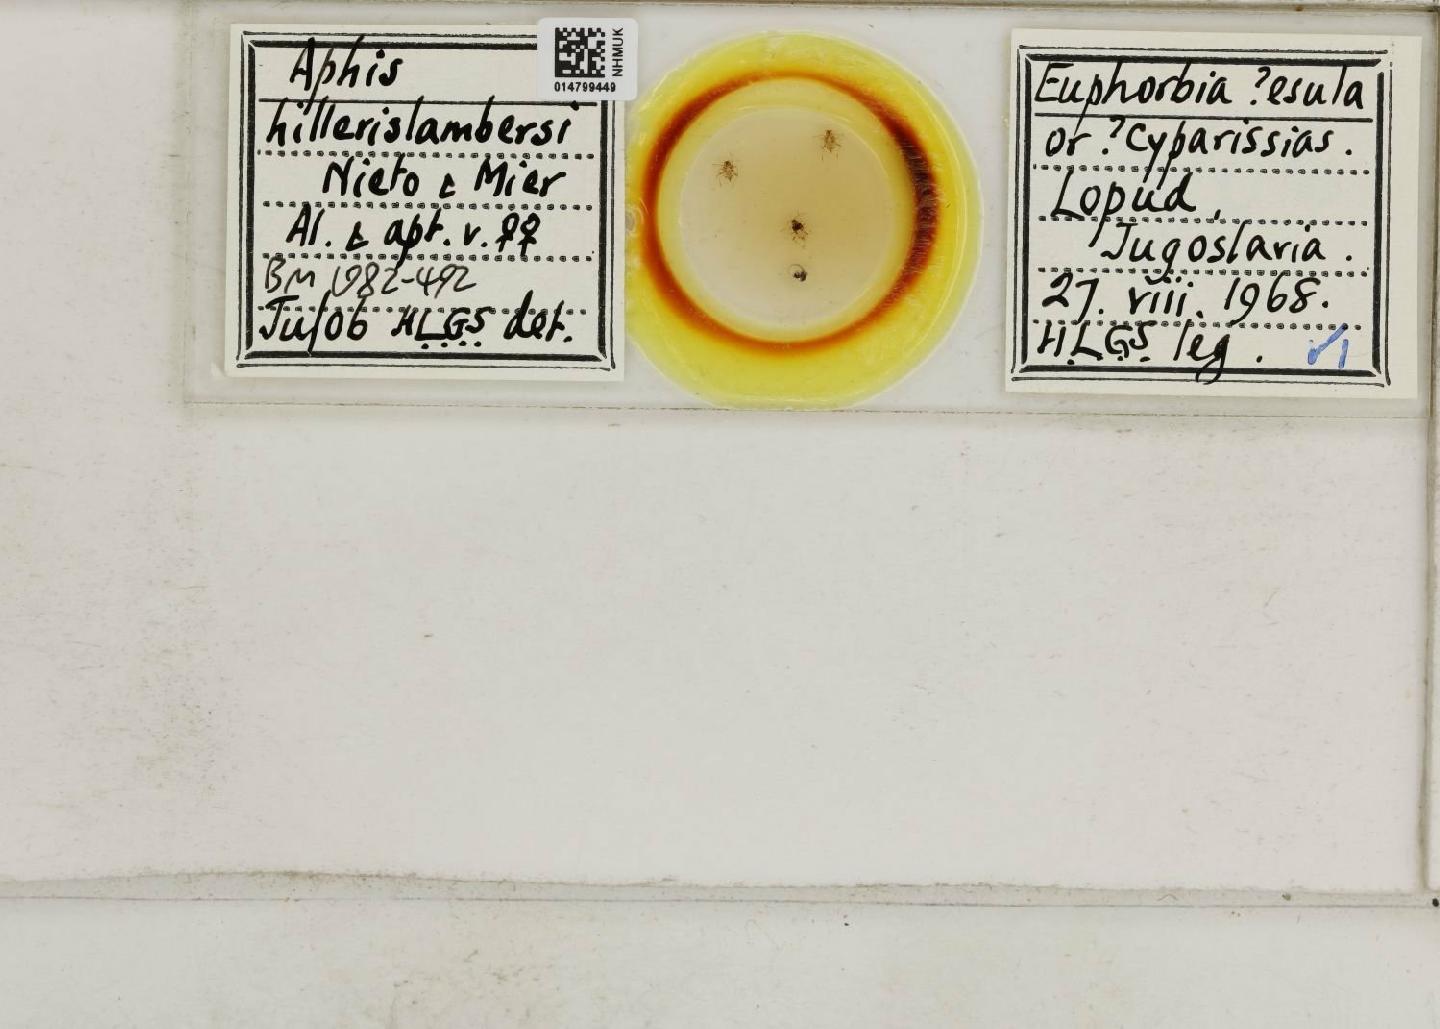 Aphis
hillerislambersi
Nieto & Mier
Al. & apt. v. ♀♀
BM 1982-492
Ju/ob HLGS det.
NHMUK
014799449
Euphorbia ?esula
or ?Cyparissias.
Lopud,
Jugoslavia.
27. viii. 1968.
HLGS leg.